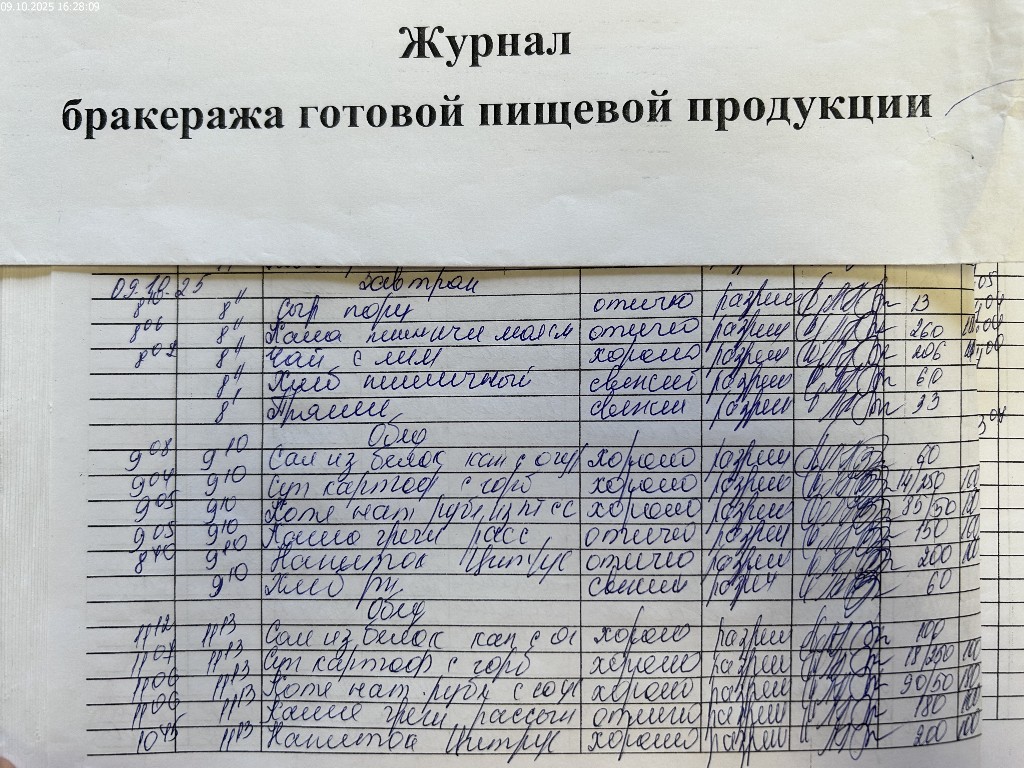 09.10.2025 16:28:09
Журнал
бракеража готовой пищевой продукции
09.10.25 Завтрак
8 11 Сыр порц отлично разреш 13
8 06 8 11 Каша пшеничн молочн отлично разреш 260
8 02 8 11 Чай с лим хорошо разреш 206
8 11 Хлеб пшеничный свежий разреш 60
Пряник свежий разреш 33
Обед
9 08 9 10 Сал из белок кап с огур хорошо разреш 60
9 04 9 10 Суп картоф с горо хорошо разреш 14/250
9 05 9 10 Котл нат рубл из пт сс хорошо разреш 85/50
9 05 9 10 Кашa гречн расс отлично разреш 150
8 40 9 10 Напиток Цитрус отлично разреш 200
9 10 Хлеб рж свежий разреш 60
Обед
11 12 11 13 Сал из белок кап с ог хорошо разреш 100
11 07 11 13 Суп картоф с горо хорошо разреш 18/250
11 06 11 13 Котл нат. рубл с соус хорошо разреш 90/50
11 06 11 13 Каша гречн рассып отлично разреш 180
10 45 11 13 Напиток Цитрус хорошо разреш 200